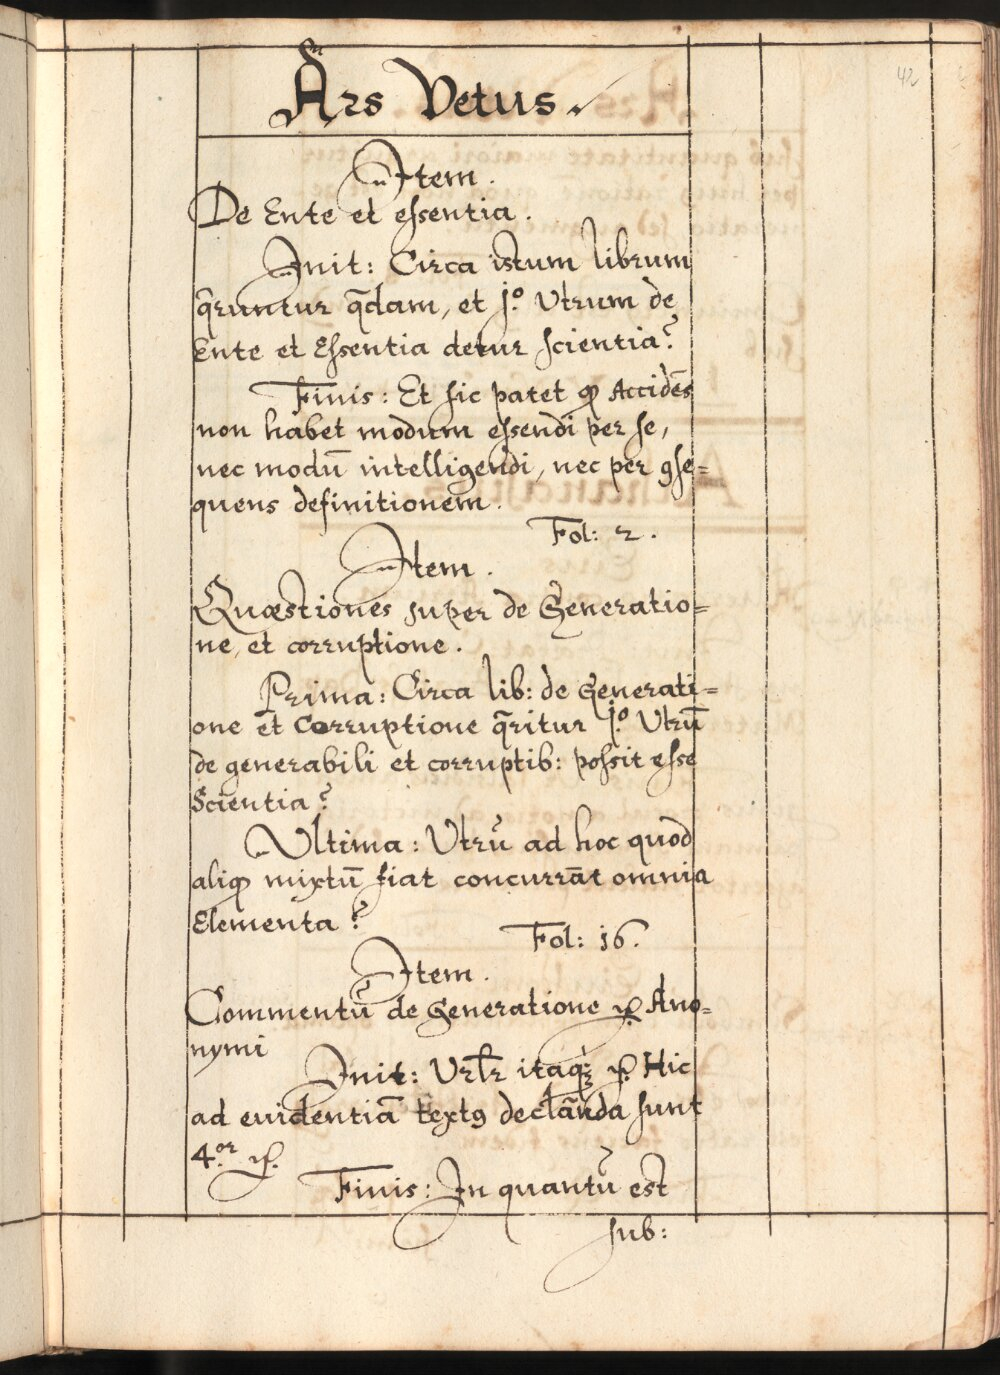 Ars Vetus.
Item.
De Ente et essentia.
Init: Circa istum librum
q̄runtur q̄dam, et j.º Utrum de
Ente et Essentia detur scientia?
Finis: Et sic patet qꝫ Accidēs
non habet modum essendi per se,
nec modū intelligendi, nec per ꝯse=
quens definitionem.
Fol: 2.
Item.
Quæstiones super de Generatio=
ne, et corruptione.
Prima: Circa lib: de Generati=
one et Corruptione q̄ritur j.º Utrū
de generabili et corruptib: possit esse
Scientia?
Ultima: Utrū ad hoc quod
aliqꝫ mixtū fiat concurrāt omnia
Elementa?
Fol: 16.
Item.
Commentū de Generatione Ano=
nymi
Init: itaqꝫ Hic
ad evidentiā textꝰ declārāda sunt
4.or
Finis: In quantū est
sub:
42